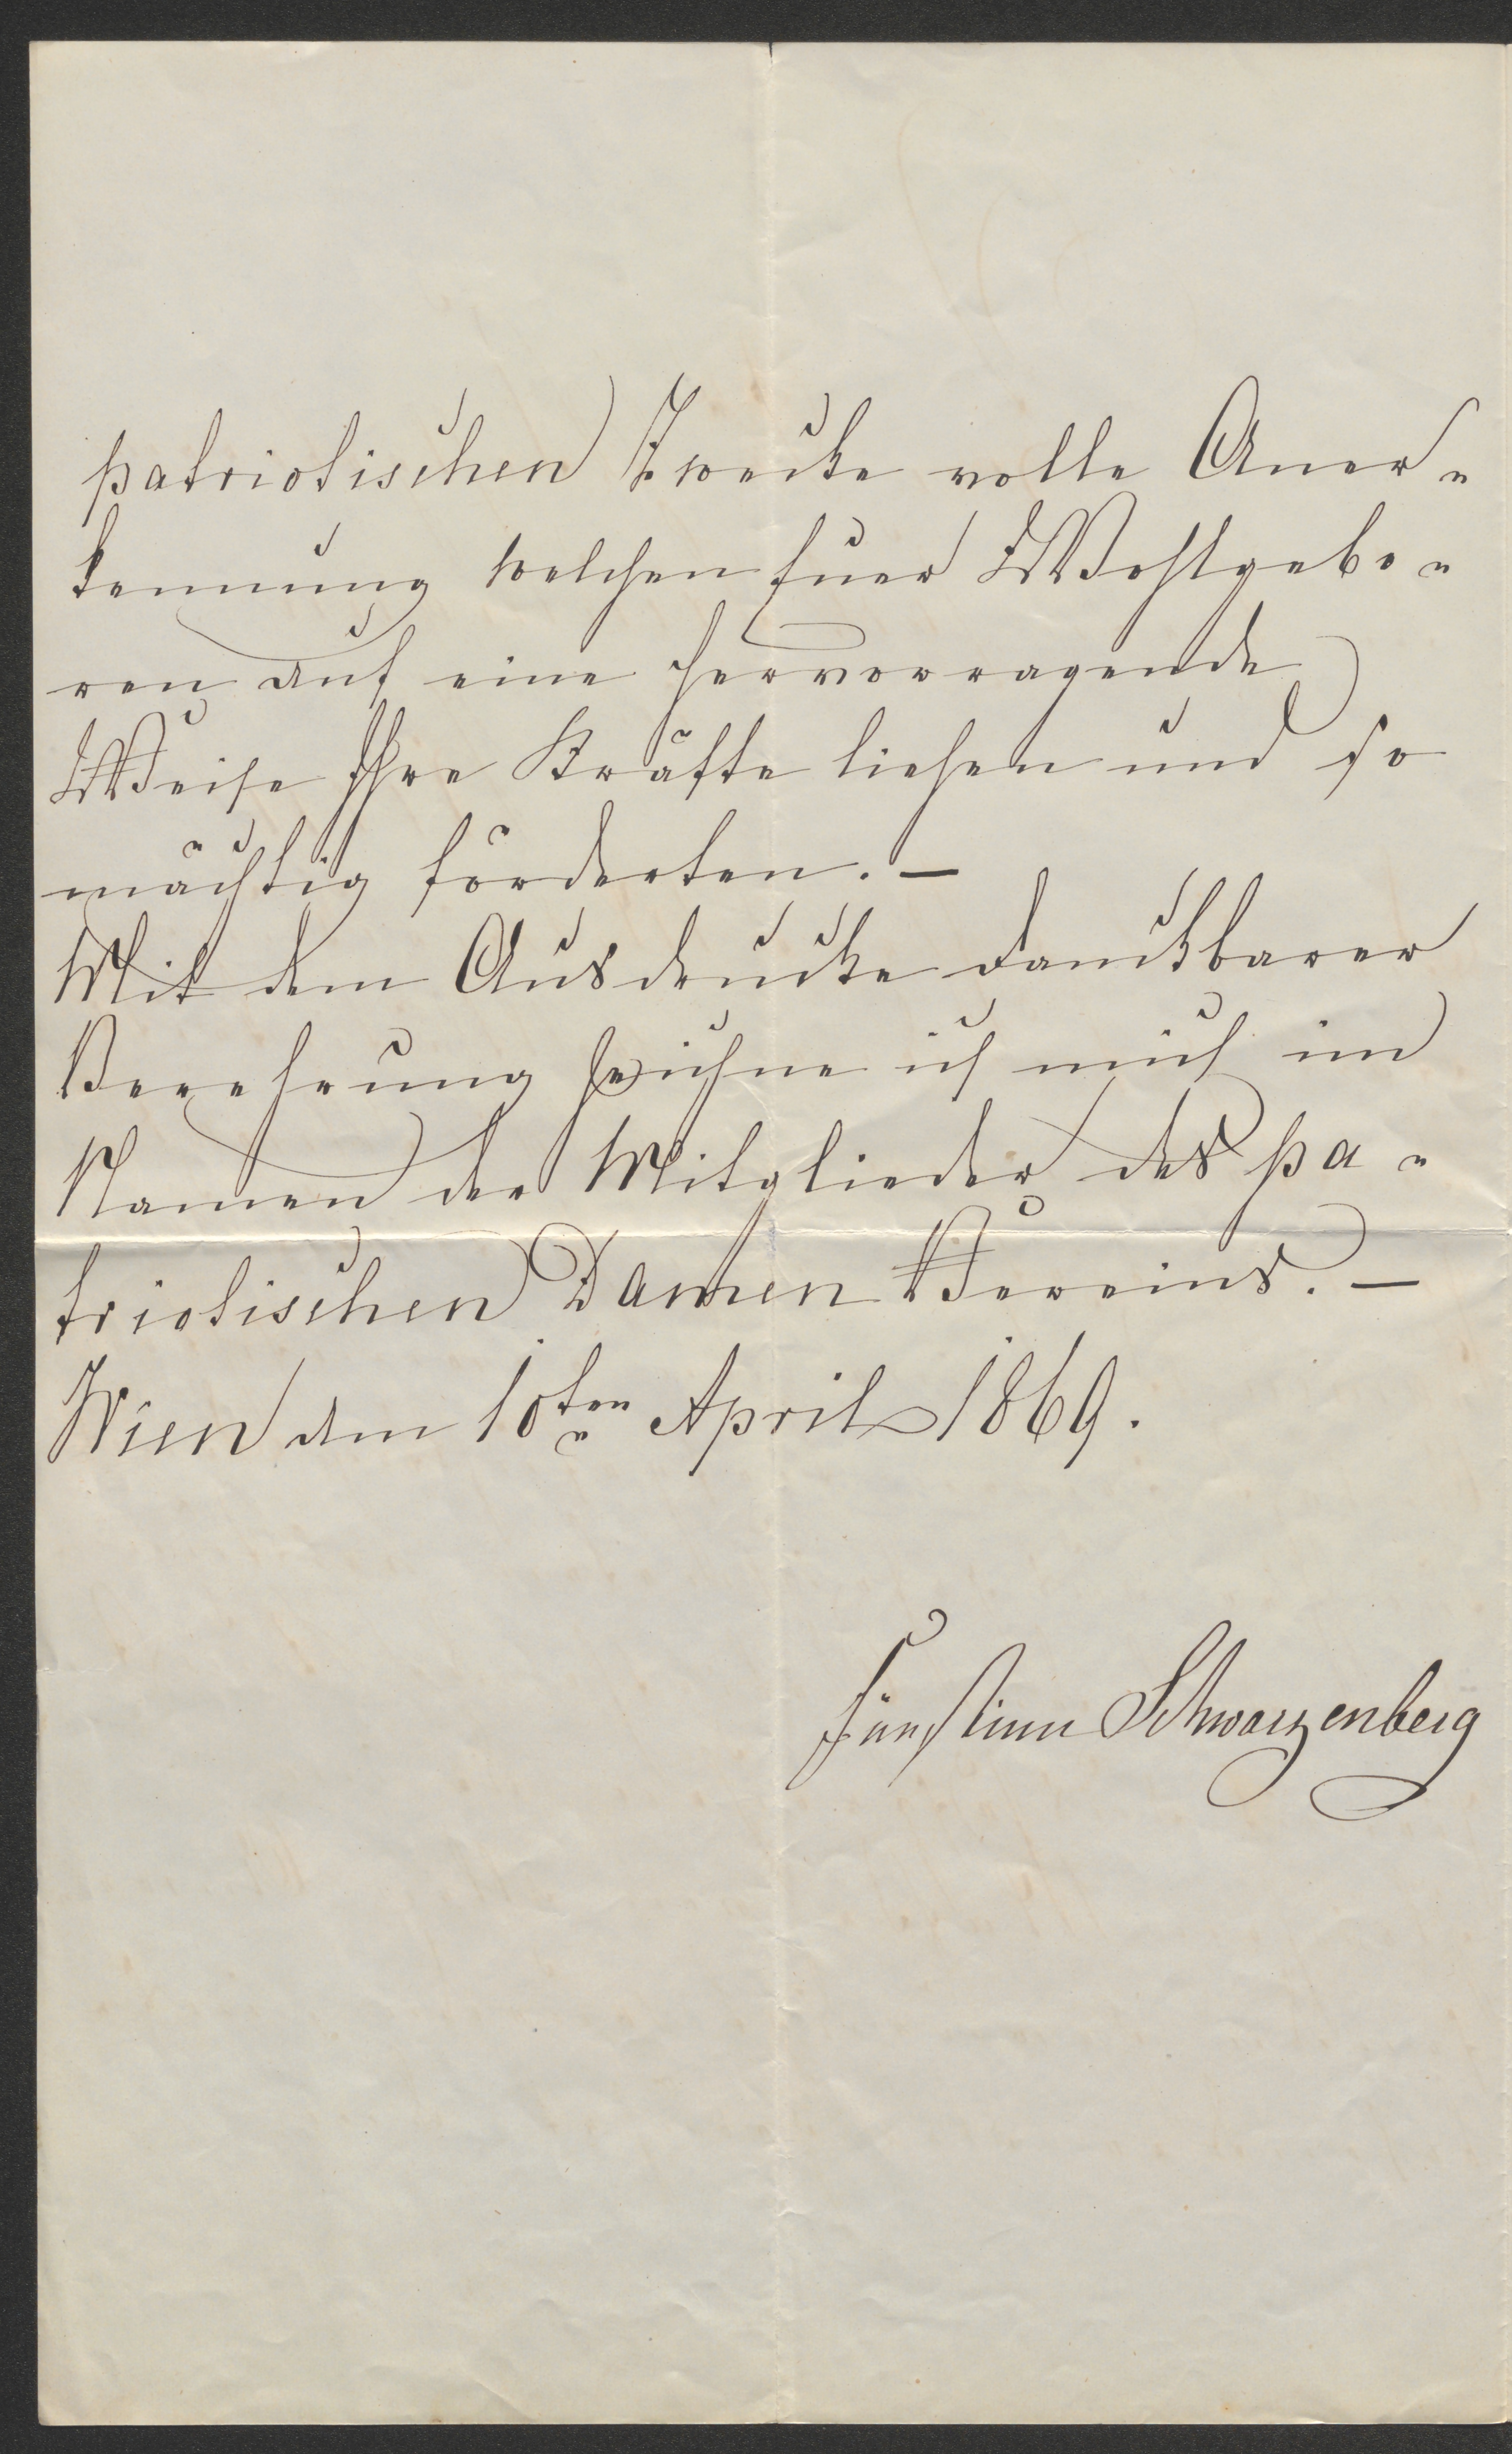 patriotischen Zwecke volle Aner„
kennung welchen Euer Wohlgebo„
ren auf eine hervorragende
Weise Ihre Kräfte liehen und so
mächtig förderten. —
Mit dem Ausdrucke dankbarer
Verehrung zeichne ich mich im
Namen der Mitglieder des pa„
triotischen Damen Vereins. —
Wien den 10ten April 1869.
Fürstinn Schwarzenberg